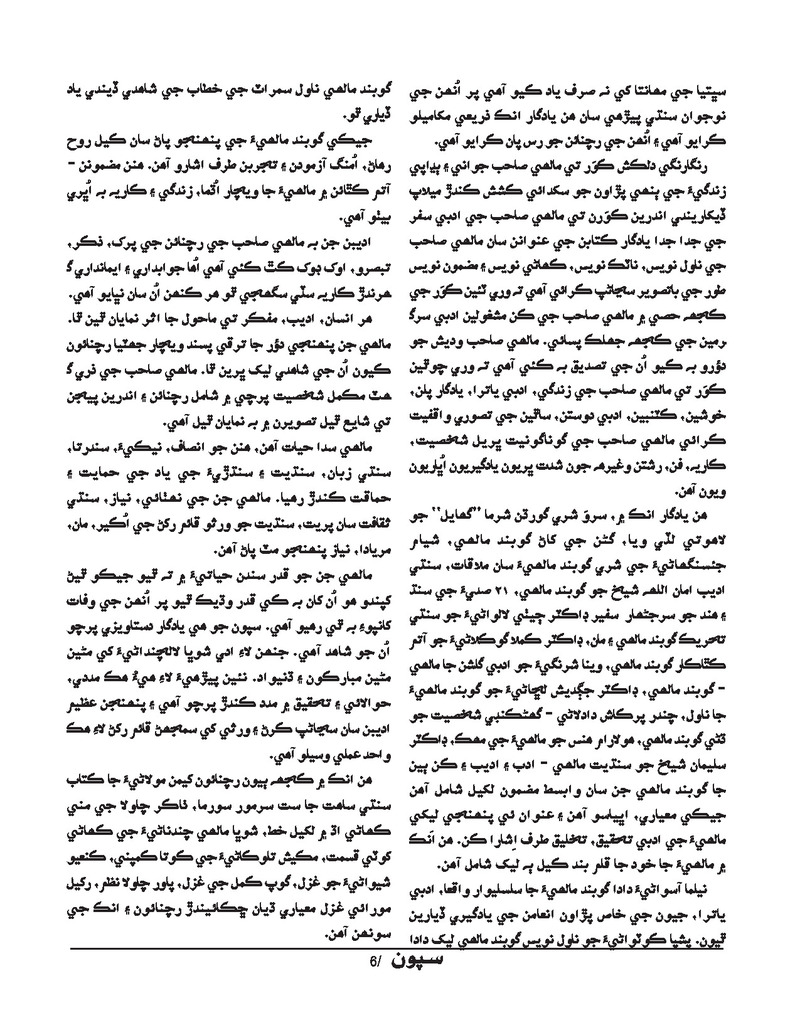 سپتيا جي مهانتا کي نہ صرف ياد ڪيو آهي پر اُنهن جي
نوجوان سنڌي پيڙهي سان هن يادگار انڪ ذريعي مڪاميلو
ڪرايو آهي ۽ اُنهن جي رچنائن جو رس پان ڪرايو آهي.
رنگارنگي دلڪش ڪوَر تي مالهي صاحب جواني ۽ ٻڍاپي
زندگيءَ جي ٻنهي پڙاون جو سڪدائي ڪشش ڪندڙ ميلاپ
ڏيکاريندي اندرين ڪوَرن تي مالهي صاحب جي ادبي سفر
جي جدا جدا يادگار ڪتابن جي عنوانن سان مالهي صاحب
جي ناول نويس، ناٽڪ نويس، ڪهاڻي نويس ۽ مضمون نويس
طور جي باتصوير سڃاڻپ ڪرائي آهي تہ وري ٽئين ڪوَر جي
ڪجهہ حصي ۾ مالهي صاحب جي ڪن مشغولين ادبي سرگ
رمين جي ڪجهہ جهلڪ پسائي. مالهي صاحب وديش جو
دؤرو بہ ڪيو اُن جي تصديق بہ ڪئي آهي تہ وري چوٿين
ڪوَر تي مالهي صاحب جي زندگي، ادبي ياترا، يادگار پلن،
خوشين، ڪٽنبين، ادبي دوستن، ساٿين جي تصوري واقفيت
ڪرائي مالهي صاحب جي گوناگونيت ڀريل شخصيت،
ڪاريہ، فن، رشتن وغيرهہ جون شدت ڀريون يادگيريون اُڀاريون
ويون آهن.
هن يادگار انڪ ۾، سروَ شري گورڌن شرما ”گھايل“ جو
لاهوتي لڏي ويا، گڻن جي کاڻ گوبند مالهي، شيام
جئسنگهاڻيءَ جي شري گوبند مالهيءَ سان ملاقات، سنڌي
اديب امان اللهہ شيخ جو گوبند مالهي، ۲۱ صديءَ جي سنڌ
۽ هند جو سرجڻهار سفير ڊاڪٽر جيٺي لالواڻيءَ جو سنڌي
تحريڪ گوبند مالهي ۽ مان، ڊاڪٽر ڪملا گوڪلاڻيءَ جو آتم
ڪٿاڪار گوبند مالهي، وينا شرنگيءَ جو ادبي گلشن جا مالهي
- گوبند مالهي، ڊاڪٽر جڳديش لڇاڻيءَ جو گوبند مالهيءَ
جا ناول، چندر پرڪاش دادلاڻي - گھڻڪنبي شخصيت جو
ڌڻي گوبند مالهي، هولارام هنس جو مالهيءَ جي مهڪ، ڊاڪٽر
سليمان شيخ جو سنڌيت مالهي - ادب ۽ اديب ۽ ڪن ٻين
جا گوبند مالهي جن سان وابسط مضمون لکيل شامل آهن
جيڪي معياري، اڀياسو آهن ۽ عنوان ئي پنهنجي ليکي
مالهيءَ جي ادبي تحقيق، تخليق طرف اِشارا ڪن. هن اَنڪ
۾ مالهيءَ جا خود جا قلم بند ڪيل ٻہ ليک شامل آهن.
نيلما آسواڻيءَ دادا گوبند مالهيءَ جا سلسليوار واقعا، ادبي
ياترا، جيون جي خاص پڙاون انعامن جي يادگيري ڏيارين
ٿيون. پشپا ڪوٽواڻيءَ جو ناول نويس گوبند مالهي ليک دادا
گوبند مالهي ناول سمراٽ جي خطاب جي شاهدي ڏيندي ياد
ڏياري ٿو.
جيڪي گوبند مالهيءَ جي پنهنجو پاڻ سان ڪيل روح
رهاڻ، اُمنگ آزمودن ۽ تجربن طرف اشارو آهن. هنن مضمونن -
آتم ڪٿائن ۾ مالهيءَ جا ويچار اُتما، زندگي ۽ ڪاريہ بہ اُڀري
بيٺو آهي.
اديبن جن بہ مالهي صاحب جي رچنائن جي پرک، ذڪر،
تبصرو، اوک ڊوک ڪٿ ڪئي آهي اُها جوابداري ۽ ايمانداري گ
هرندڙ ڪاريہ سڏي سگهجي ٿو هر ڪنهن اُن سان نڀايو آهي.
هر انسان، اديب، مفڪر تي ماحول جا اثر نمايان ٿين ٿا.
مالهي جن پنهنجي دؤر جا ترقي پسند ويچار جهٽيا رچنائون
ڪيون اُن جي شاهدي ليک ڀرين ٿا. مالهي صاحب جي ذري گ
هٽ مڪمل شخصيت پرچي ۾ شامل رچنائن ۽ اندرين پيجن
تي شايع ٿيل تصويرن ۾ بہ نمايان ٿيل آهي.
مالهي سدا حيات آهن، هنن جو انصاف، نيڪيءَ، سندرتا،
سنڌي زبان، سنڌيت ۽ سنڌڙيءَ جي ياد جي حمايت ۽
حماقت ڪندڙ رهيا. مالهي جن جي نهٺائي، نياز، سنڌي
ثقافت سان پريت، سنڌيت جو ورثو قائم رکڻ جي اُڪير، مان،
مريادا، نياز پنهنجو مٽ پاڻ آهن.
مالهي جن جو قدر سندن حياتيءَ ۾ تہ ٿيو جيڪو ٿيڻ
کپندو هو اُن کان بہ ڪي قدر وڌيڪ ٿيو پر اُنهن جي وفات
کانپوءِ بہ ٿي رهيو آهي. سپون جو هي يادگار دستاويزي پرچو
اُن جو شاهد آهي. جنهن لاءِ ادي شوڀا لالچنداڻيءَ کي مڻين
مڻين مبارڪون ۽ ڌنيواد. نئين پيڙهيءَ لاءِ هيءُ هڪ مددي،
حوالائي ۽ تحقيق ۾ مدد ڪندڙ پرچو آهي ۽ پنهنجن عظيم
اديبن سان سڃاڻپ ڪرڻ ۽ ورثي کي سمجهڻ قائم رکڻ لاءِ هڪ
واحد عملي وسيلو آهي.
هن انڪ ۾ ڪجهہ ٻيون رچنائون کيمن مولاڻيءَ جا ڪتاب
سنڌي ساهت جا ست سرمور سورما، ٺاڪر چاولا جي مني
ڪهاڻي اڌ ۾ لکيل خط، شوڀا مالهي چندناڻيءَ جي ڪهاڻي
کوٽي قسمت، مڪيش تلوڪاڻيءَ جي ڪوتا ڪمپني، ڪنعيو
شيواڻيءَ جو غزل، گوپ ڪمل جي غزل، پاور چاولا نظم، رکيل
مورائي غزل معياري ڏيان ڇڪائيندڙ رچنائون ۽ انڪ جي
سونهن آهن.
سپون /6